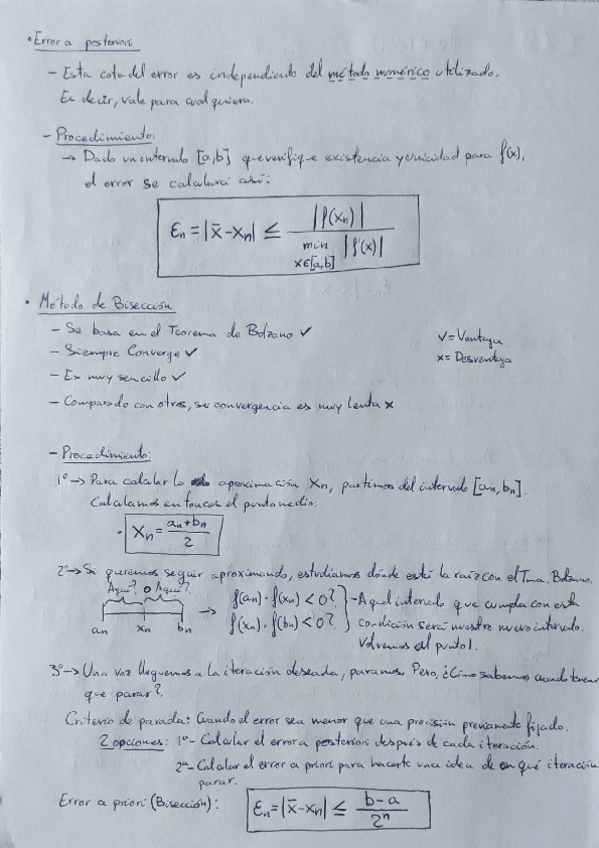 • Error a posteriori
- Esta cota del error es independiente del método numérico utilizado.
Es decir, vale para cualquiera.
- Procedimiento:
→ Dado un intervalo [a,b] que verifique existencia y unicidad para f(x),
el error se calculará así:
εn = |x̄ - xn| ≤ |f(xn)| / min x∈[a,b] |f'(x)|
• Método de Bisección
- Se basa en el Teorema de Bolzano ✓
- Siempre Converge ✓
- Es muy sencillo ✓
- Comparado con otros, su convergencia es muy lenta x
v = Ventaja
x = Desventaja
- Procedimiento:
1º → Para calcular la aproximación xn, partimos del intervalo [an, bn].
Calculamos entonces el punto medio:
• xn = (an + bn) / 2
2º → Si queremos seguir aproximando, estudiamos dónde está la raíz con el Tma. Bolzano.
Aquí? o Aquí?
an xn bn → f(an)·f(xn) < 0? f(xn)·f(bn) < 0? } - Aquel intervalo que cumpla con esta
condición será nuestro nuevo intervalo.
Volvemos al punto 1.
3º → Una vez lleguemos a la iteración deseada, paramos. Pero, ¿Cómo sabemos cuando tenemos
que parar?
Criterio de parada: Cuando el error sea menor que una precisión previamente fijado.
2 opciones: 1ª - Calcular el error a posteriori después de cada iteración.
2ª - Calcular el error a priori para hacerte una idea de en qué iteración
parar.
Error a priori (Bisección): εn = |x̄ - xn| ≤ (b - a) / 2ⁿ